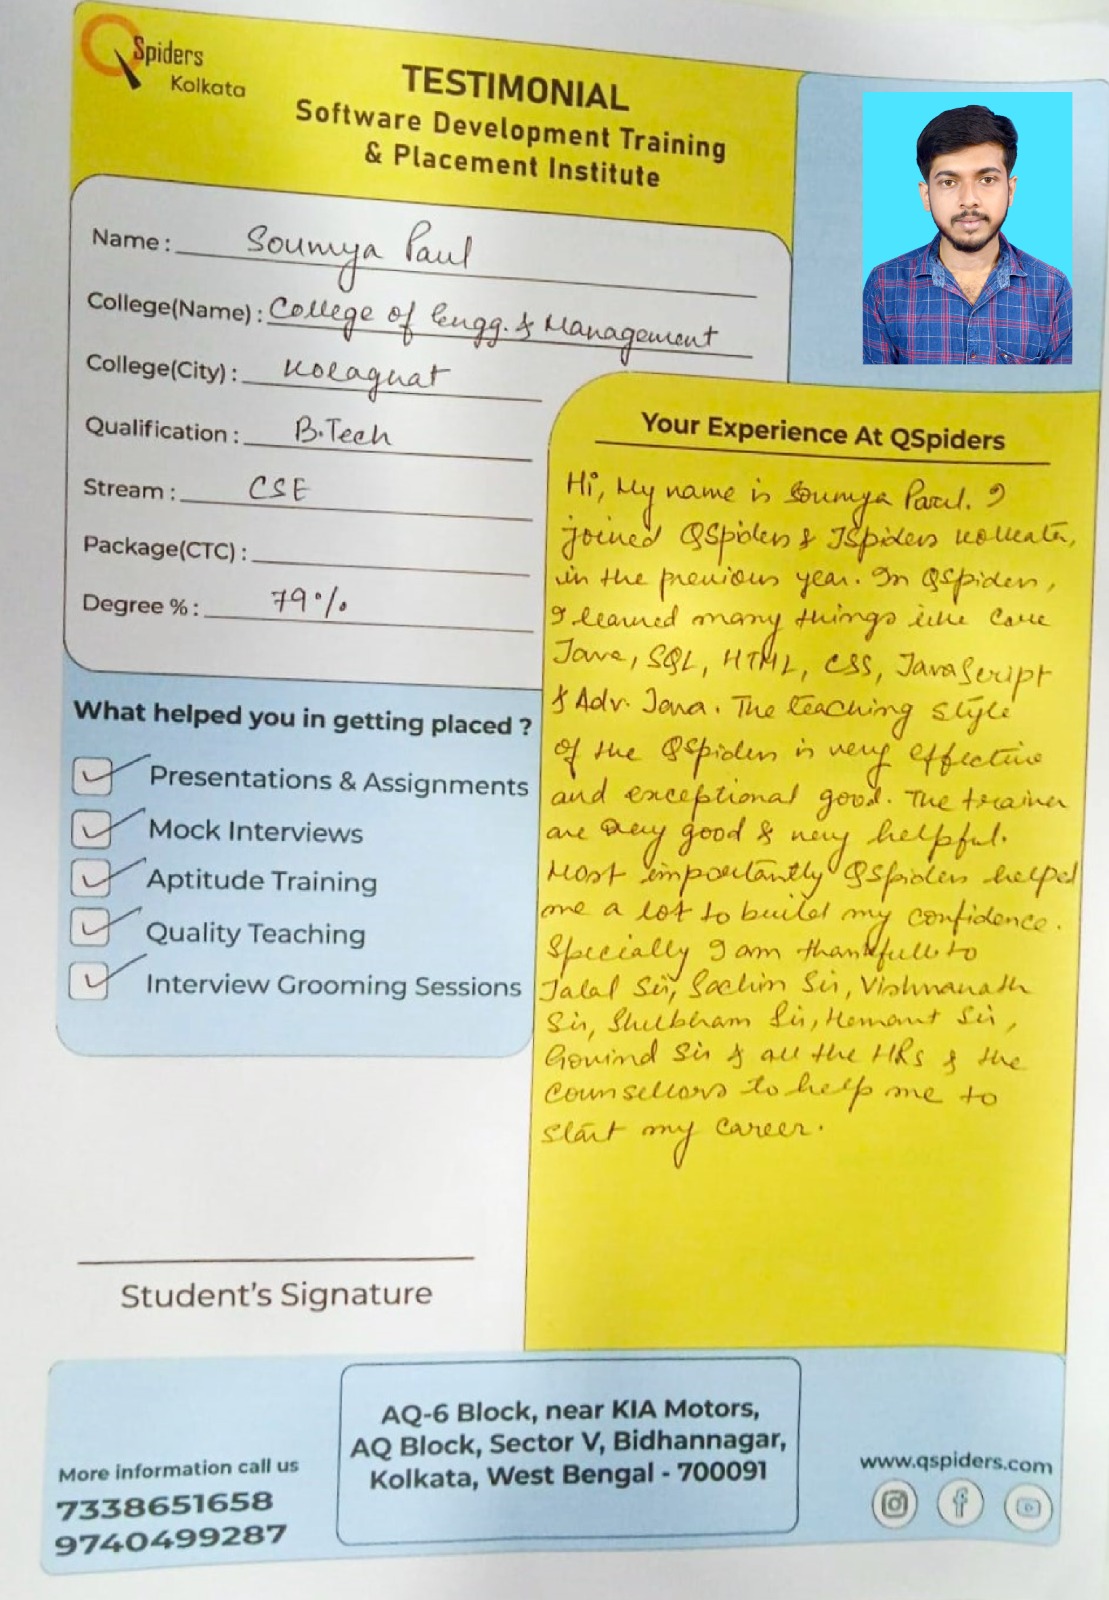 QSpiders
Kolkata
TESTIMONIAL
Software Development Training
& Placement Institute
Name : Soumya Paul
College(Name) : College of Engg. & Management
College(City) : Kolaghat
Qualification : B.Tech
Stream : CSE
Package(CTC) :
Degree % : 79%
What helped you in getting placed ?
Presentations & Assignments
Mock Interviews
Aptitude Training
Quality Teaching
Interview Grooming Sessions
Student's Signature
Your Experience At QSpiders
Hi, My name is Soumya Paul. I
joined QSpiders & JSpiders Kolkata,
in the previous year. In QSpiders,
I learned many things like Core
Java, SQL, HTML, CSS, JavaScript
& Adv. Java. The teaching style
of the QSpiders is very effective
and exceptional good. The trainer
are very good & very helpful.
Most importantly QSpiders helped
me a lot to build my confidence.
Specially I am thankfull to
Jalal Sir, Sachin Sir, Vishwanath
Sir, Shubham Sir, Hemant Sir,
Govind Sir & all the HRs & the
Counsellors to help me to
start my career.
More information call us
7338651658
9740499287
AQ-6 Block, near KIA Motors,
AQ Block, Sector V, Bidhannagar,
Kolkata, West Bengal - 700091
www.qspiders.com